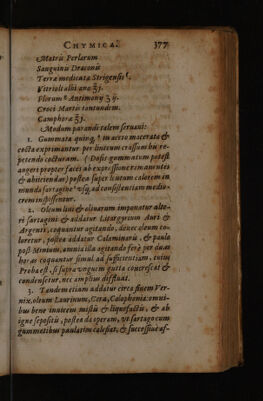 CHYMICA. 377
Matris Perlarum
Sanguinis Draconis
Terræ medicatæ Strigensis
Vitrioli albi ana ℥j.
Florum Antimony ℥ij.
Croci Martis tantundem.
Camphoræ ℥j.
Modum parandi talem servani:
1. Gummata quinq; in aceto macerata &
cocta exprimantur per linteum crassum bis re-
petendo cocturam. (Dosis gummatum potest
augeri propter faces ab expressione remanentes
& abiiciendas) postea super lentum calorem in
munda sartagine usq; ad consistentiam medio-
crem inspissentur.
2. Oleum lini & olivarum imponatur alte-
ri sartagini & addatur Lithargyrum Auri &
Argenti, coquantur agitando, donec oleum co-
loretur, postea addatur Calaminaris, & paulo
post Minium, omnia illa agitando ferè per duas
horas coquantur simul ad sufficientiam, cuius
Proba est, si supra unguem gutta concrescat &
condensetur, nec amplius diffluat.
3. Tandem etiam addatur circa finem Ver-
nix, oleum Laurinum, Cera, Calophonia: omni-
bus bene invicem mistis & liquefactis, & ab
igne sepositis, postea da operam, ut sartago cum
gummatibus paulatim calefiat, & successivè af-